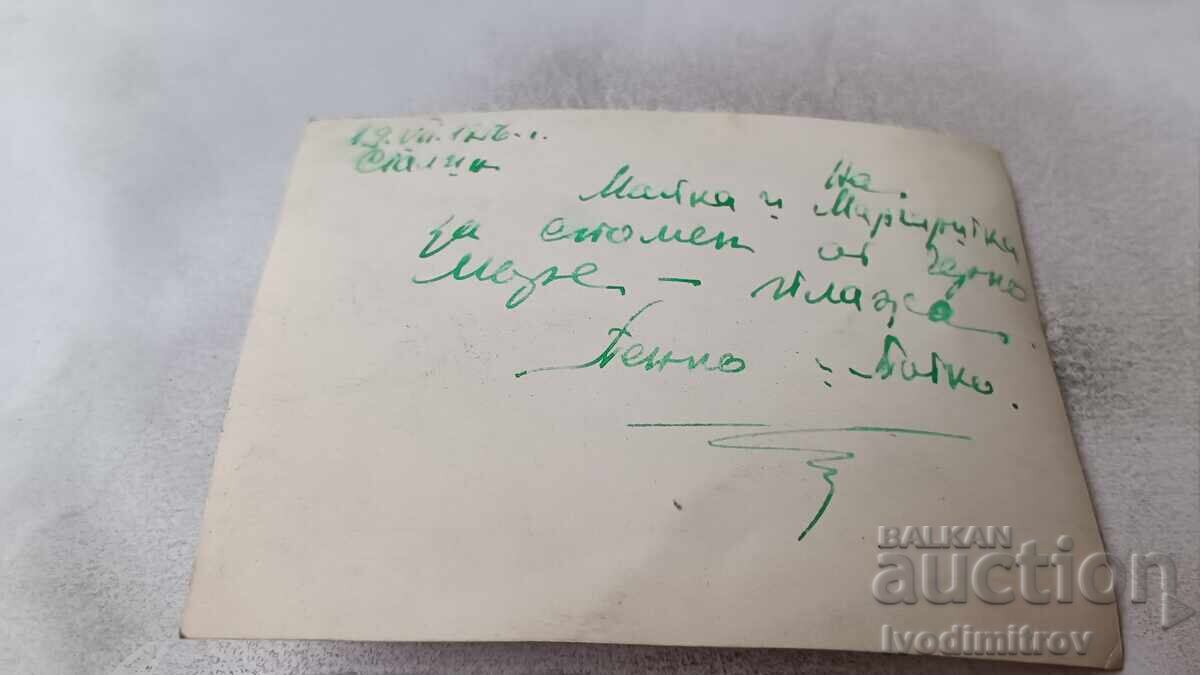 19.VII.1956 г.
Сталин
На
Майка и Маргаритка
за спомен от Черно
Море – плажа.
Пенко и Бойко.
BALKAN
auction
Ivodimitrov